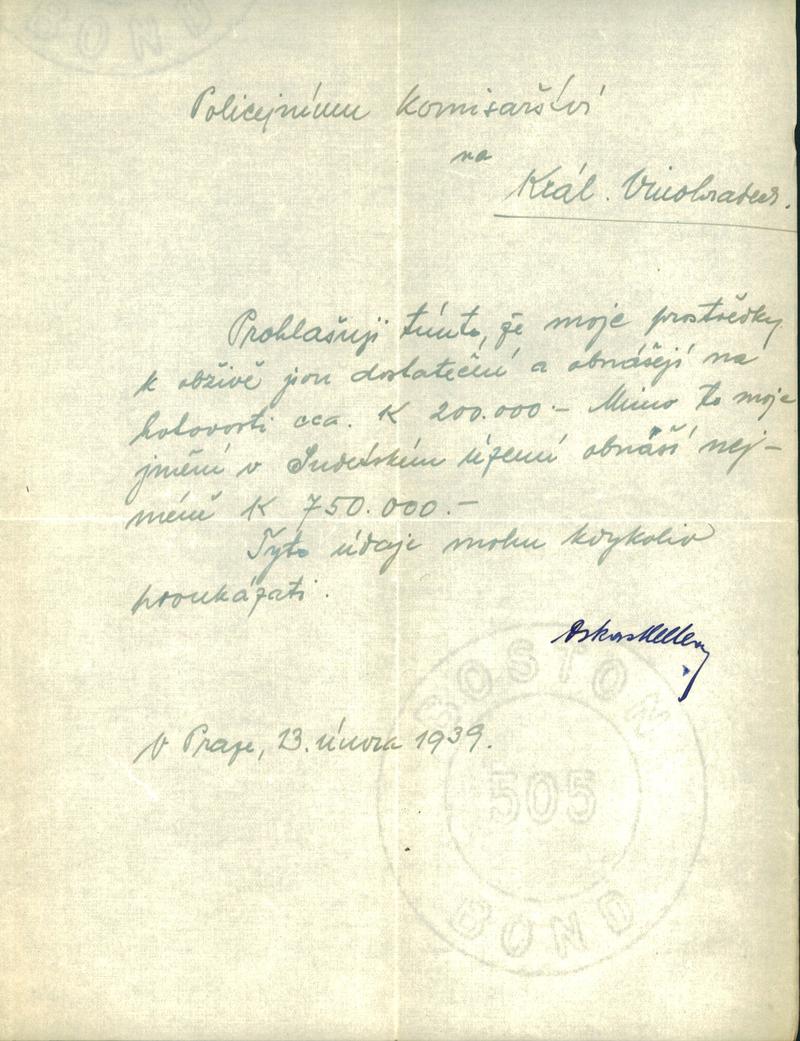 BOND
Policejnímu komisařství
na
Král. Vinohradech.
Prohlašuji tímto, že moje prostředky
k obživě jsou dostateční a obnášejí na
hotovosti cca. K 200.000.- Mimo to moje
jmění v Sudetském území obnáší nej-
méně K 750.000.-
Tyto údaje mohu kdykoliv
proukázati.
Oskar Heller
V Praze, 13. února 1939.
BOSTON
505
BOND